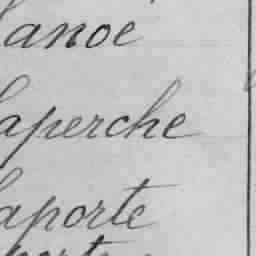 Lanoë
Laperche
Laporte